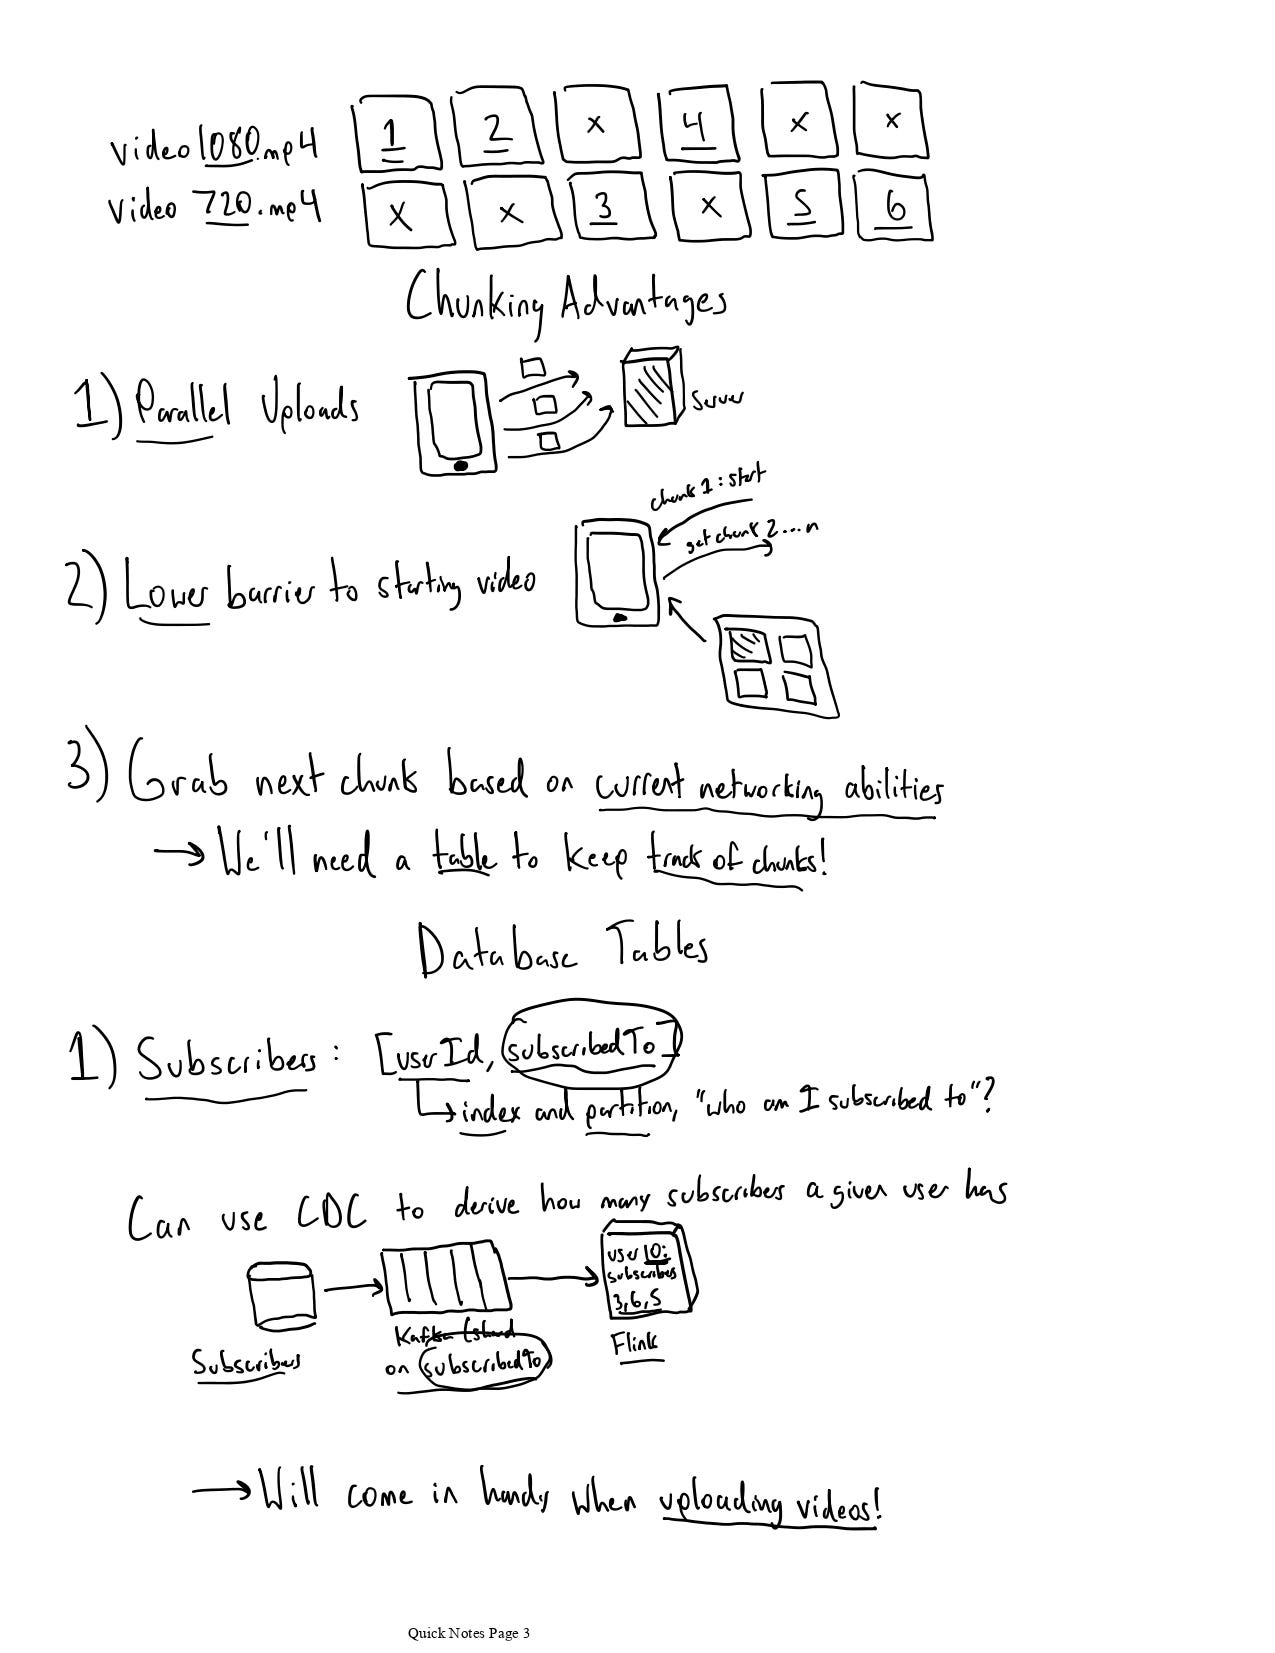 video1080.mp4 1 2 x 4 x x
video 720.mp4 x x 3 x 5 6
Chunking Advantages
1) Parallel Uploads
Server
chunk 1: start
get chunk 2...n
2) Lower barrier to starting video
3) Grab next chunk based on current networking abilities
→ We'll need a table to keep track of chunks!
Database Tables
1) Subscribers: [userId, subscribedTo]
↳ index and partition, "who am I subscribed to"?
Can use CDC to derive how many subscribers a given user has
user 10:
subscribers
3,6,5
Kafka (shard
on subscribedTo)
Flink
Subscribers
→ Will come in handy when uploading videos!
Quick Notes Page 3